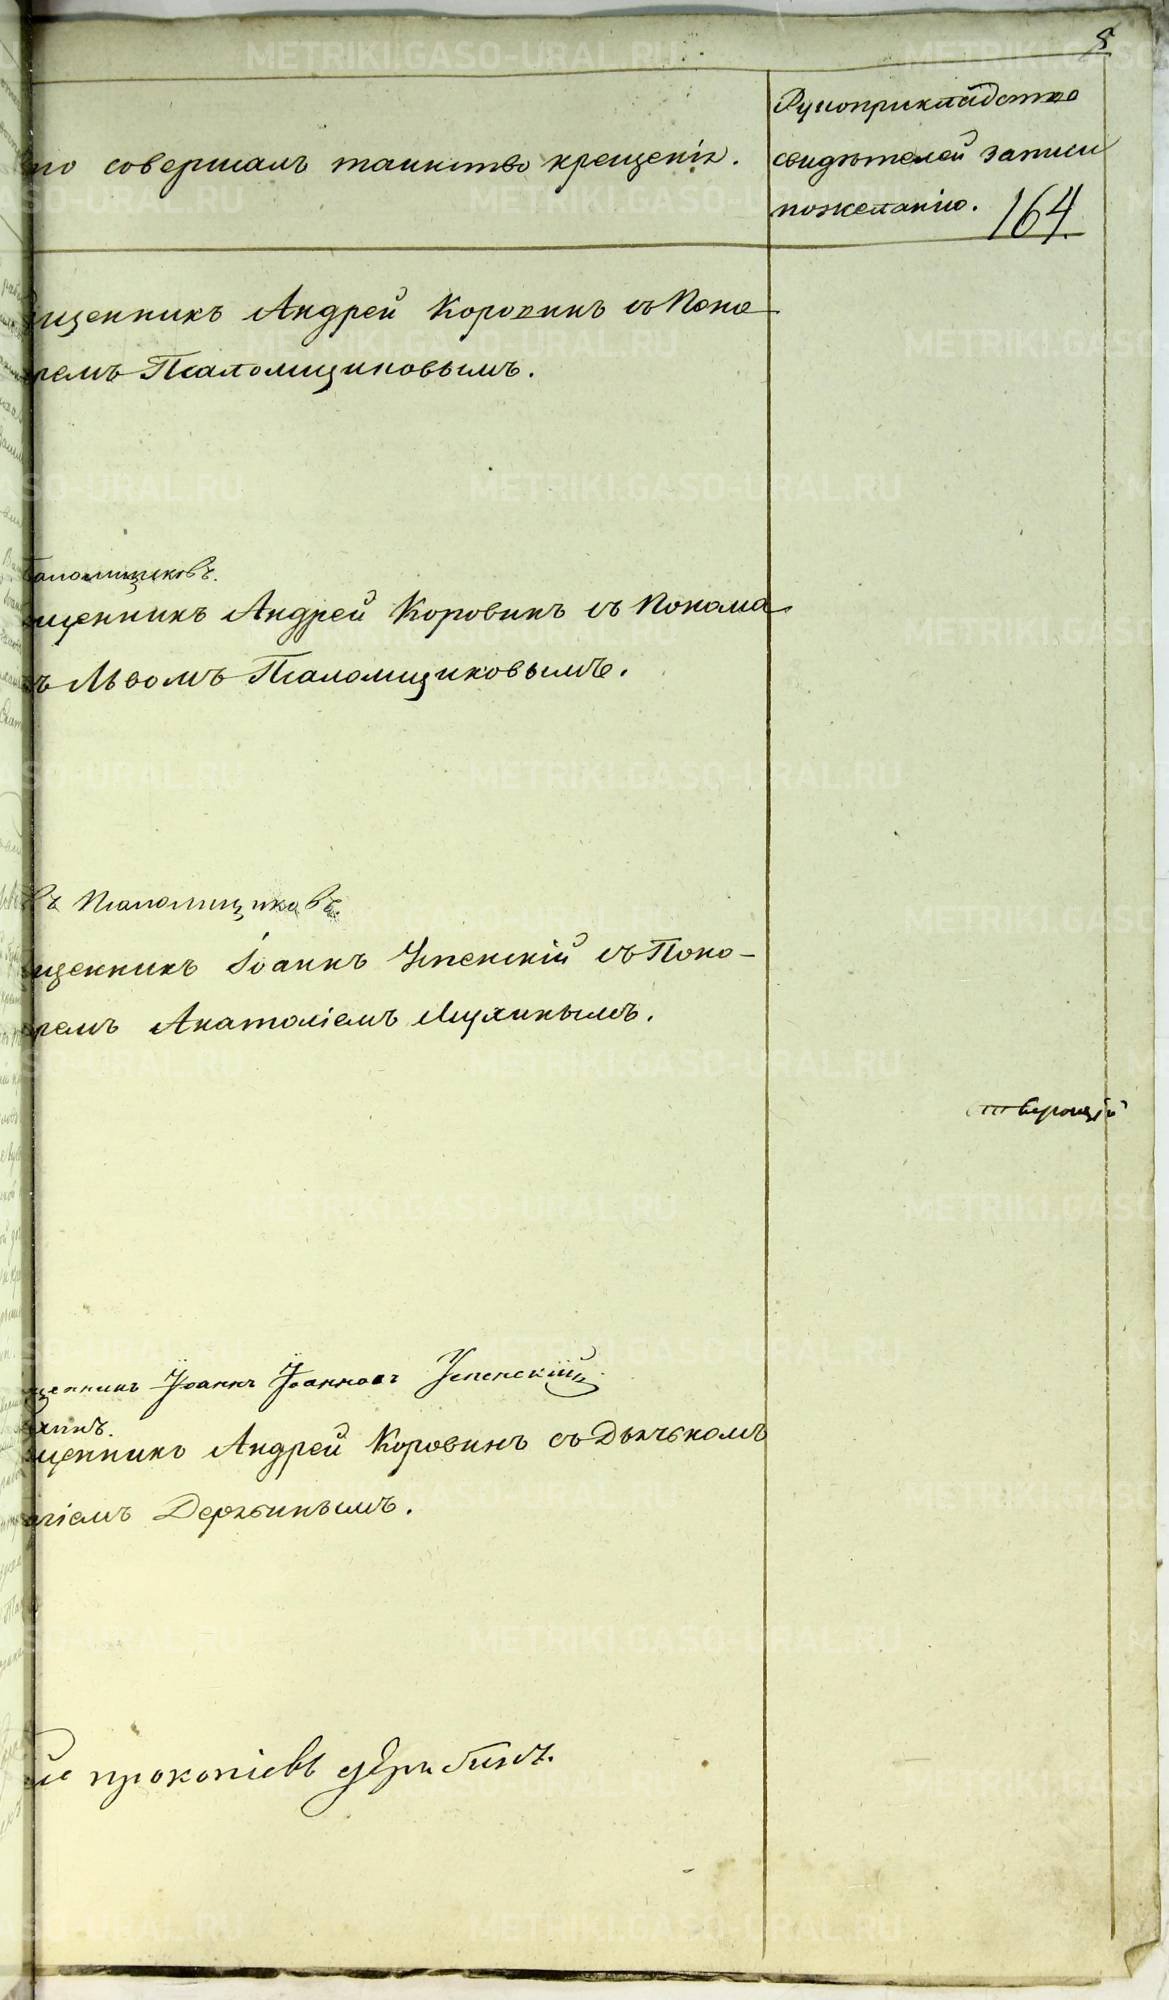 5
то совершалъ таинство крещенія.
Рукоприкладство
свидѣтелей записи
пожеланію. 164
щенникъ Андрей Коровинъ съ Поно-
ремъ Псаломщиковымъ.
саломщиковъ.
щенникъ Андрей Коровинъ съ Понома
ъ Львомъ Псаломщиковымъ.
въ Псаломщиковъ.
щенникъ Іоаннъ Успенскій съ Поно-
ремъ Анатоліемъ Мухинымъ.
щенникъ Іоаннъ Іоанновъ Успенскій
хинъ.
щенникъ Андрей Коровинъ съ Дьячкомъ
гіемъ Дерябинымъ.
прокопіевъ дерябинъ.